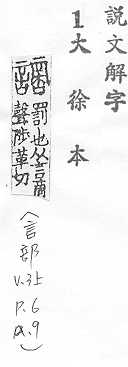 説文解字
1大徐本
罰也从言啇
聲陟革切
(言部
V.3上
P.6
a.9)